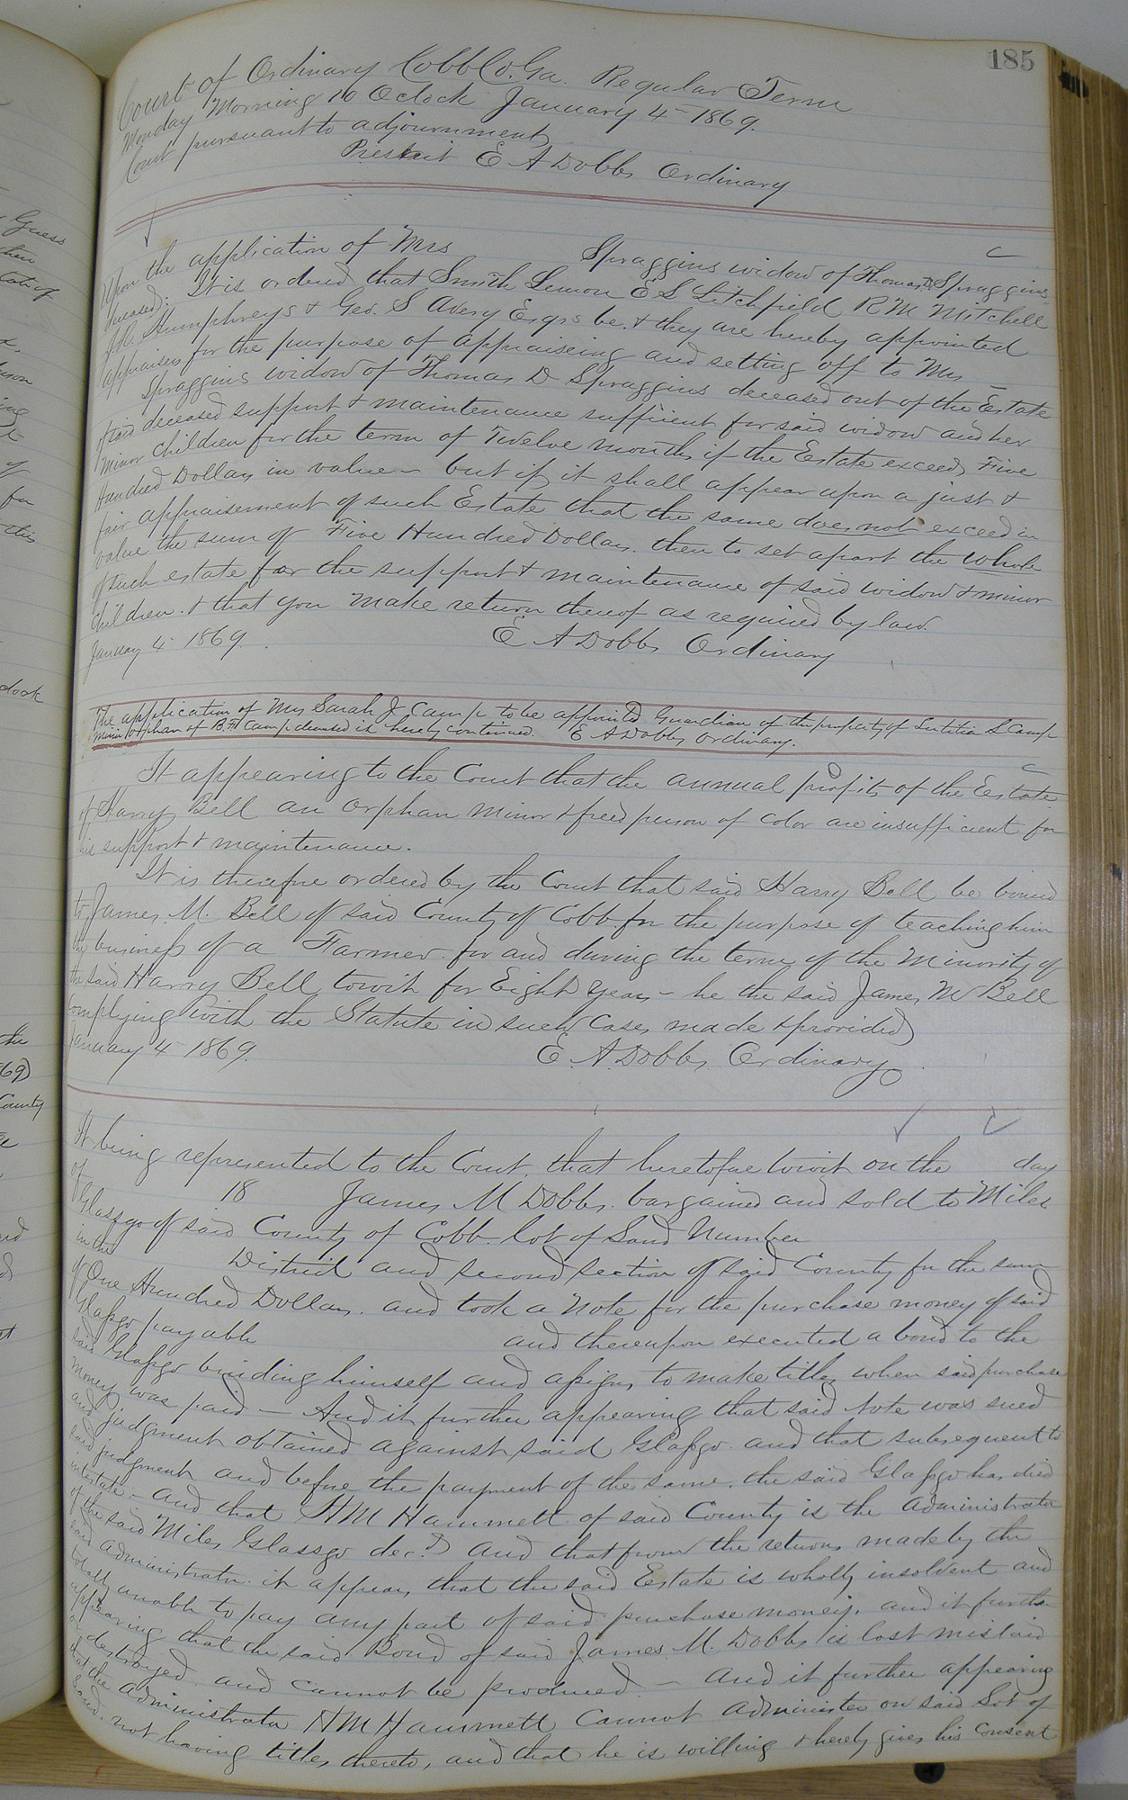 185
Court of Ordinary Cobb Co. Ga. Regular Term
Monday Morning 10 Oclock January 4 - 1869.
Court pursuant to adjournment
Present E A Dobbs Ordinary
Upon the application of Mrs Spraggins widow of Thomas D Spraggins
deceased; It is ordered that Smith Lemon E S Litchfield R M Mitchell
Humphreys & Geo. S Avery Esqrs be & they are hereby appointed
appraisers for the purpose of appraiseing and setting off to Mrs
Spraggins widow of Thomas D Spraggins deceased out of the Estate
deceased support & maintenance sufficient for said widow and her
minor children for the term of Twelve months if the Estate exceeds Five
Hundred Dollars in value - but if it shall appear upon a just &
fair appraisement of such Estate that the same does not exceed in
value the sum of Five Hundred Dollars. then to set apart the whole
of such estate for the support & maintenance of said widow & minor
children. & that you make return thereof as required by law
January 4 - 1869. E A Dobbs Ordinary
The application of Mrs Sarah J Camp to be appointed Guardian of the property of S Camp
minor orphan of Camp deceased is hereby continued. E A Dobbs Ordinary.
It appearing to the Court that the annual profits of the Estate
of Harry Bell an orphan minor & freed person of color are insufficient for
his support & maintenance.
It is therefore ordered by the Court that said Harry Bell be bound
to James M. Bell of said County of Cobb for the purpose of teaching him
the business of a Farmer for and during the term of the Minority of
the said Harry Bell towit for Eight years - he the said James M Bell
complying with the Statute in such cases made & provided
January 4 - 1869. E. A. Dobbs Ordinary
It being represented to the Court, that heretofore towit on the day
of 18 James M Dobbs. bargained and sold to Miles
Glassgo of said County of Cobb. lot of Land Number
in the District and second section of said County for the sum
of One Hundred Dollars. and took a Note for the purchase money of said
Glassgo payable and thereupon executed a bond to the
said Glassgo binding himself and assigns to make titles when said purchase
money was paid - And it further appearing that said Note was sued
and judgment obtained against said Glassgo and that subsequent to
said judgment and before the payment of the same. the said Glassgo has died
intestate - and that H M Hammett of said County is the Administrator
of the said Miles Glassgo decd and that from the returns made by the
said administrator it appears that the said Estate is wholly insolvent and
totally unable to pay any part of said purchase money. and it further
appearing that the said Bond of said James M. Dobbs is lost mislaid
or destroyed and cannot be produced - and it further appearing
that the Administrator H M Hammett cannot administer on said Lot of
Land. not having titles thereto, and that he is willing & hereby gives his consent
Guess
of
for
this
the
69)
County